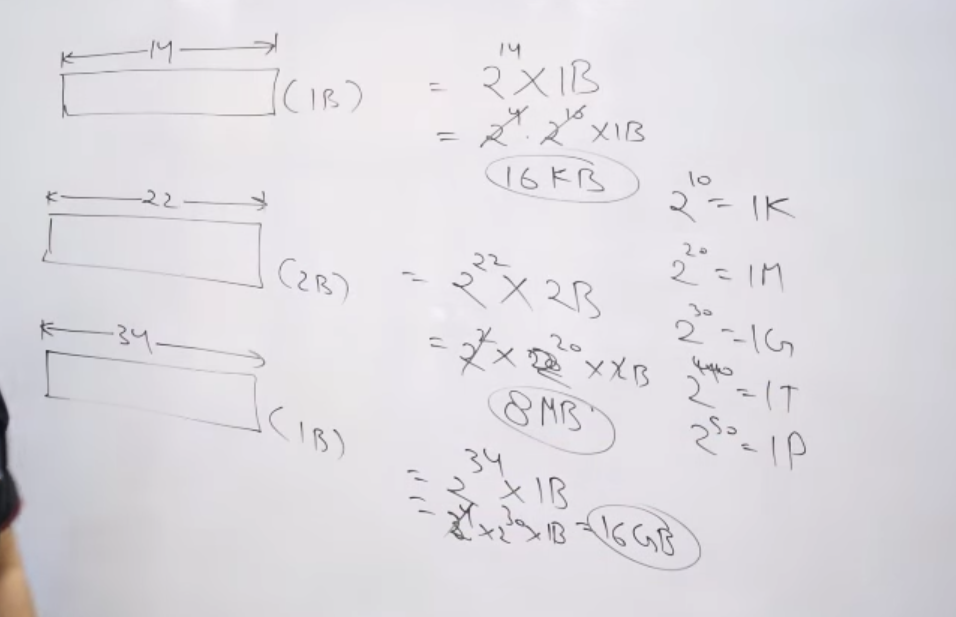 14
(1B)
= 2^14 X 1B
= 2^4 · 2^10 X 1B
16 KB
22
(2B)
= 2^22 X 2B
= 2^2 X 2^20 X 2B
8 MB
34
(1B)
= 2^34 X 1B
= 2^4 X 2^30 X 1B = 16 GB
2^10 = 1K
2^20 = 1M
2^30 = 1G
2^40 = 1T
2^50 = 1P